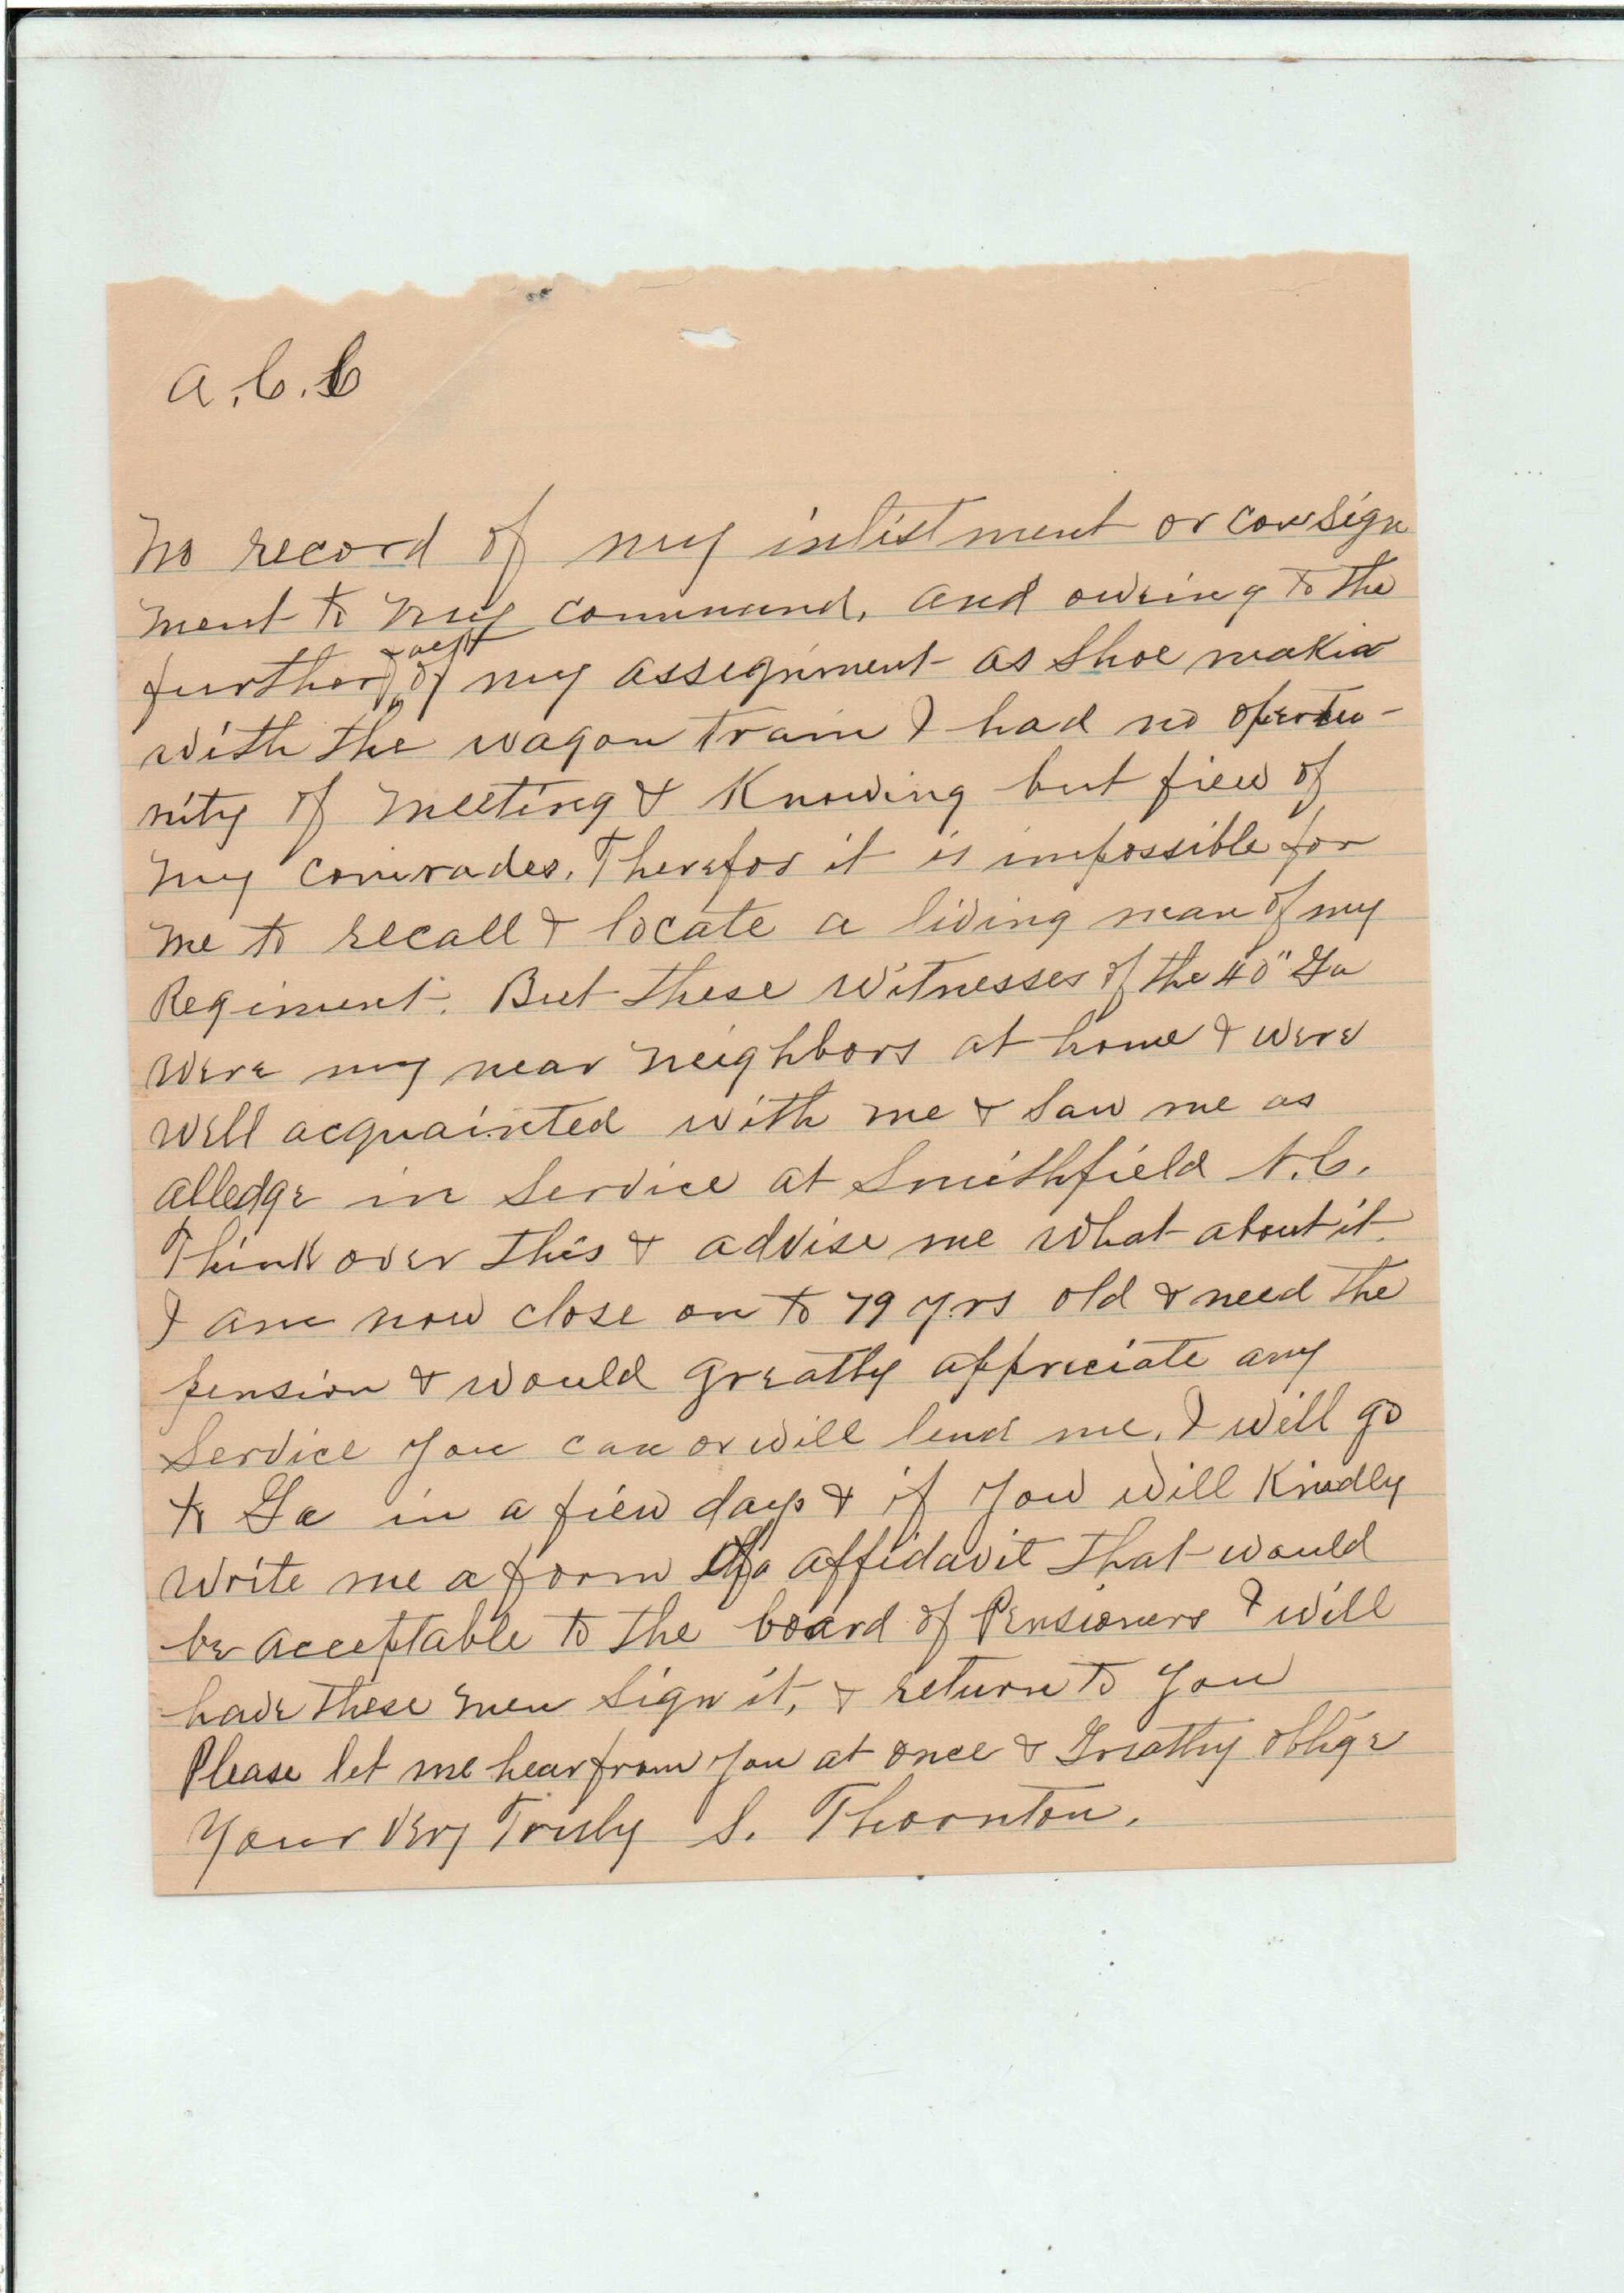 a.C.C
No record of my inlistment or consign
ment to my command, and owing to the
fact
further of my assegnment as shoe maker
with the wagon train I had no opertu-
nity of meeting & Knowing but fiew of
my comrades. Therefor it is impossible for
me to recall & locate a living man of my
Regiment. But these witnesses of the 40" Ga
were my near neighbors at home & were
well acquainted with me & saw me as
alledge in service at Smithfield N.C.
Think over this & advise me what about it.
I am now close on to 79 yrs old & need the
pension & would greatly appreciate any
service you can or will lend me. I will go
to Ga in a fiew days & if you will Kindly
write me a form of affidavit that would
be acceptable to the board of Pensioners I will
have these men sign it, & return to you
Please let me hear from you at once & Greatly oblige
Your very Truly S. Thornton.